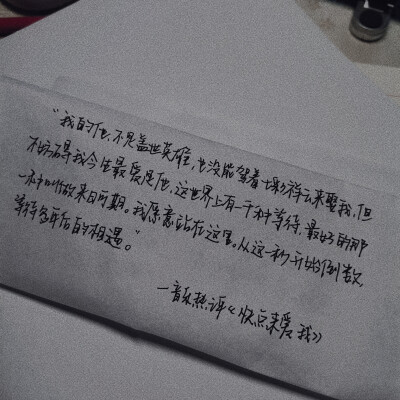 “我的他,不是盖世英雄,也没能驾着七彩祥云来娶我,但
不妨碍我今生最爱是他,这世界上有一千种等待,最好的那
一种叫做来日可期。我愿意站在这里。从这一秒开始倒数,
等待多年后的相遇。”
一音乐热评《快点来爱我》